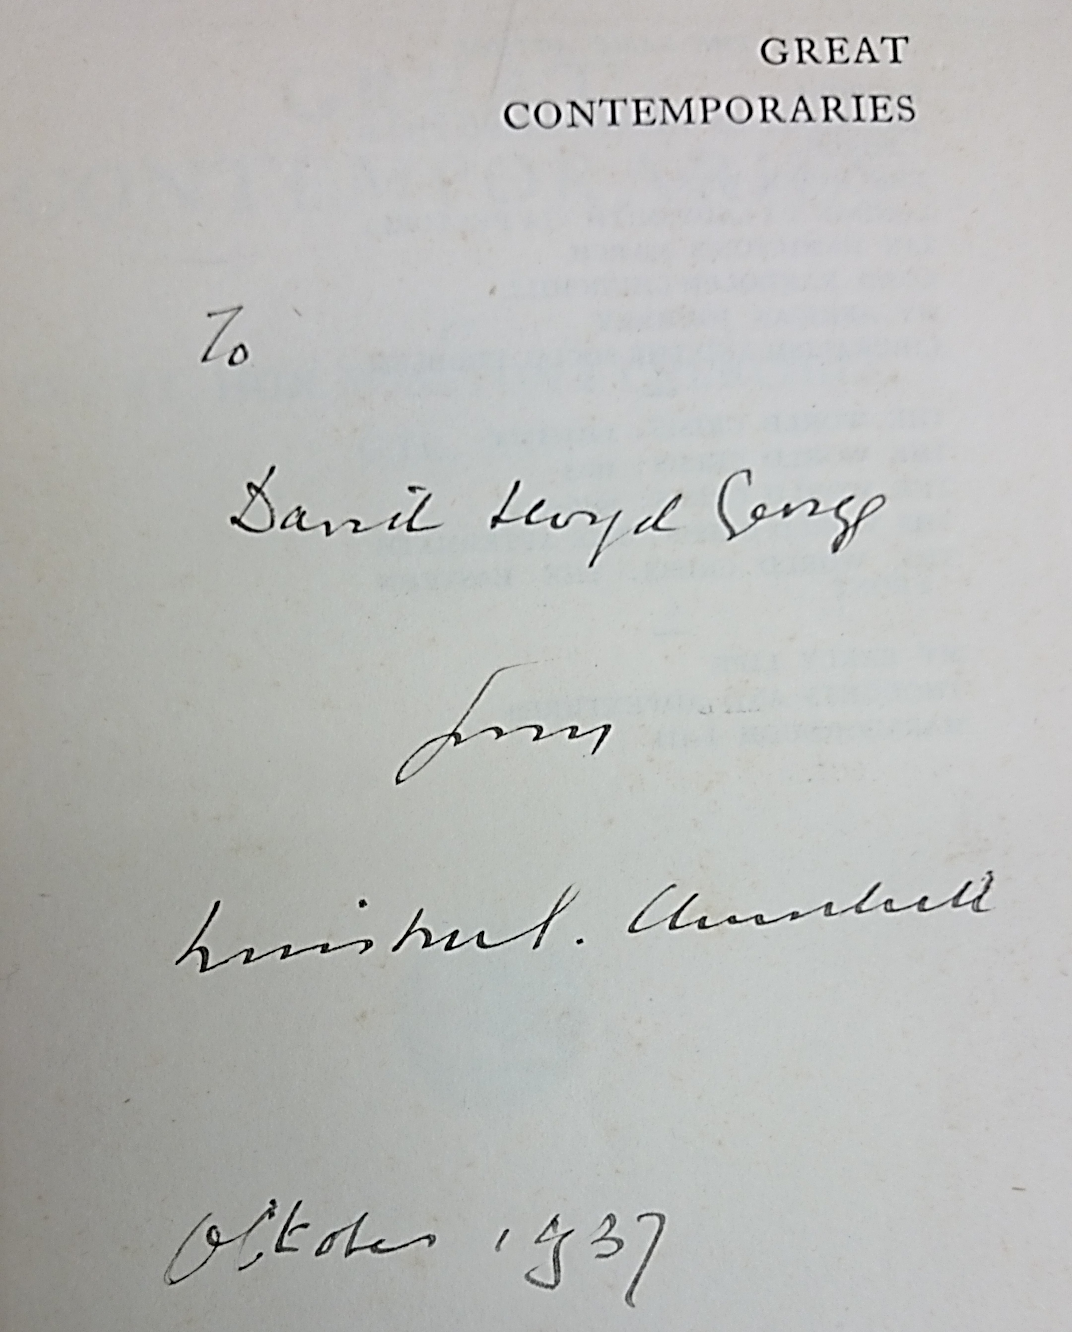 GREAT
CONTEMPORARIES
To
David Lloyd George
from
Winston S. Churchill
October 1937